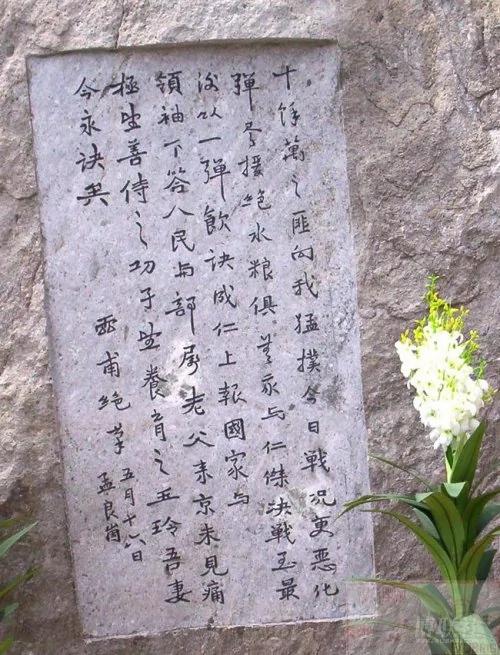 十餘萬之匪向我猛撲今日戰况更恶化
彈尽援絶水粮俱無我与仁傑決戰至最
後以一彈飲訣成仁上報國家与
領袖下答人民与部屬老父来京未見痛
極望善侍之幼子望養育之玉玲吾妻
今永訣矣
灵甫絶筆
五月十六日
孟良崮